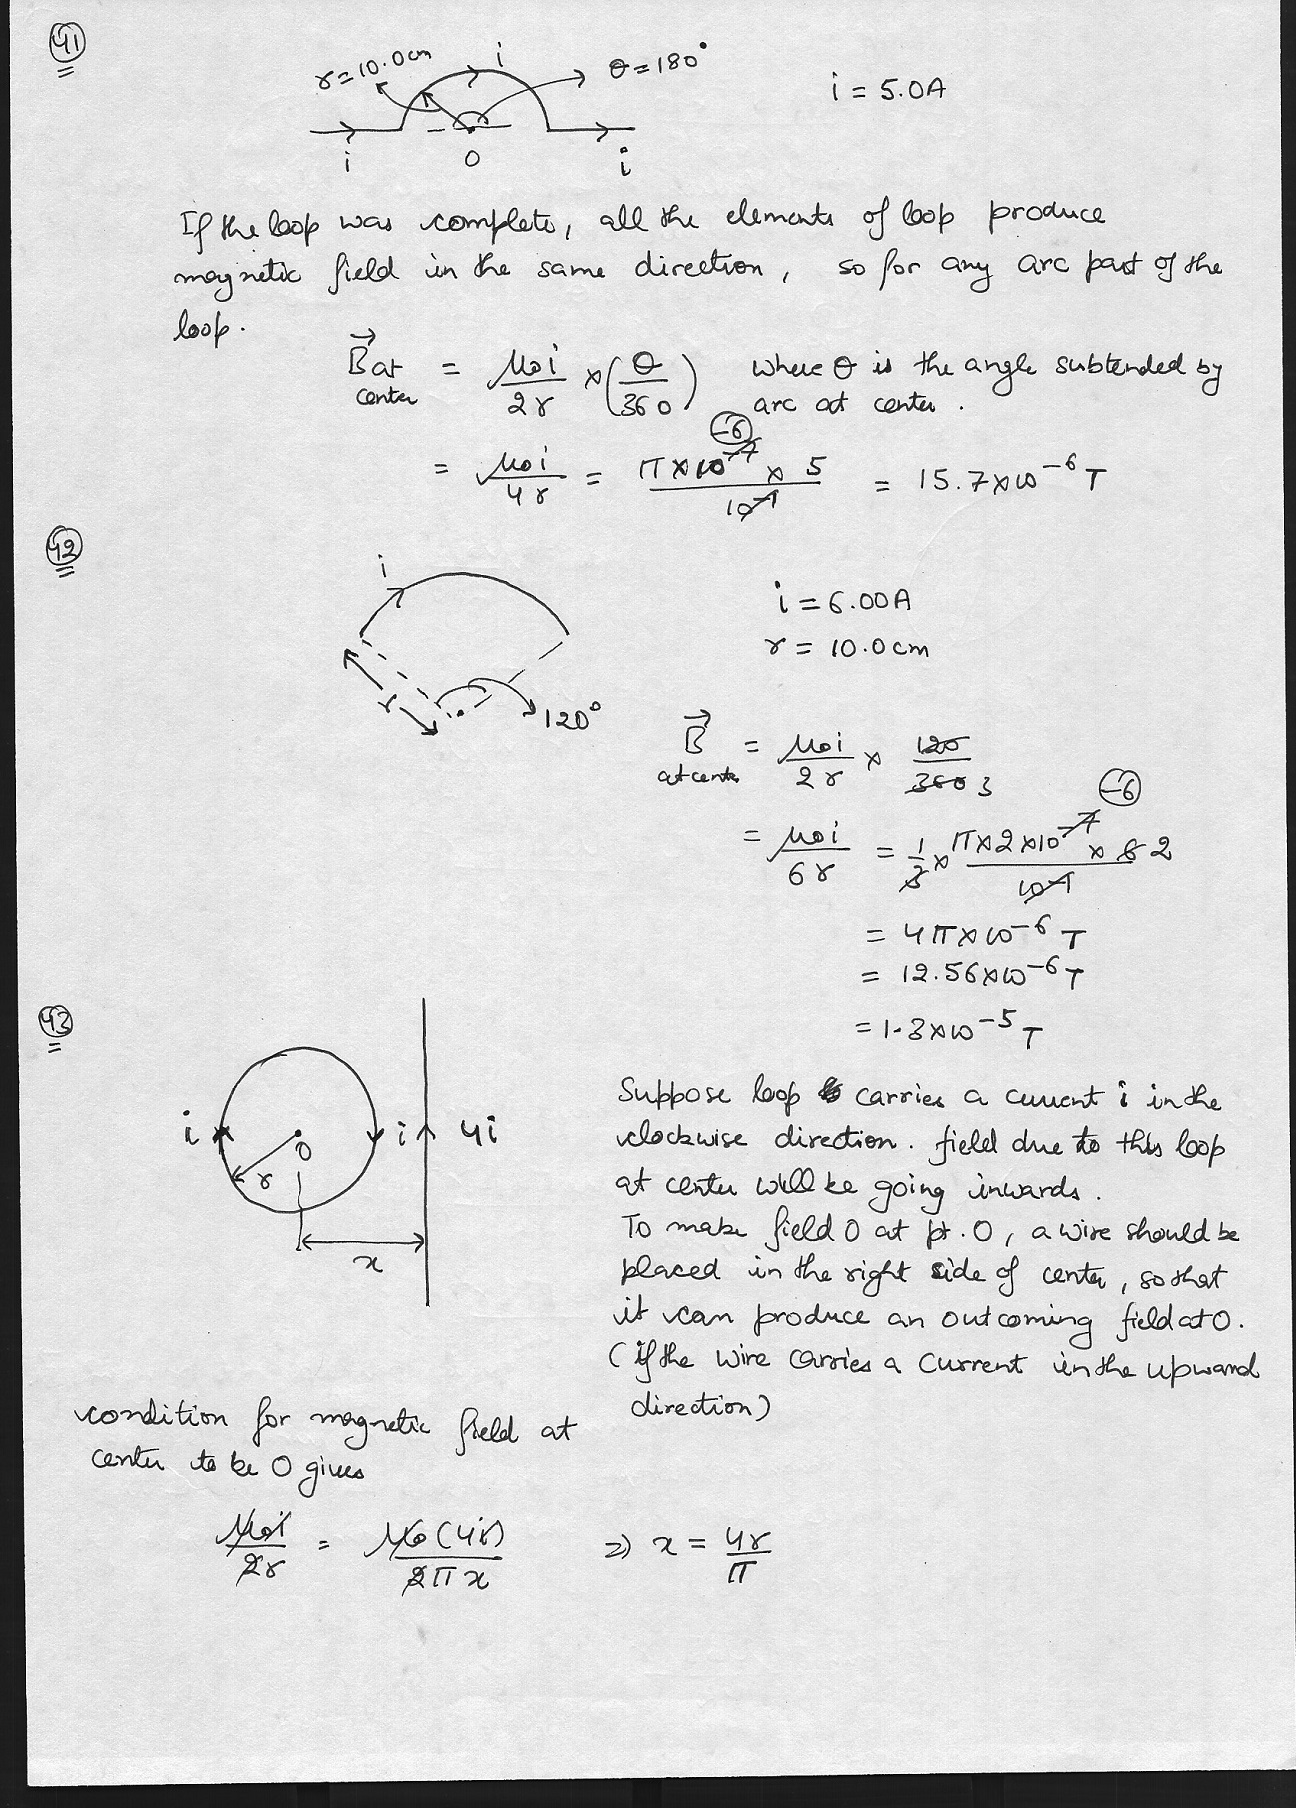 41
r=10.0cm
i
θ=180°
i = 5.0A
i
O
i
If the loop was complete, all the elements of loop produce
magnetic field in the same direction, so for any arc part of the
loop.
B⃗ at center = μ₀i/2r × (θ/360) where θ is the angle subtended by
arc at center.
= μ₀i/4r = π×10⁻⁷ × 5/10⁻¹ = 15.7×10⁻⁶ T
-6
42
i
i = 6.00A
r = 10.0cm
r
120°
B⃗ at center = μ₀i/2r × 120/360 3
-6
= μ₀i/6r = 1/3 × π×2×10⁻⁷ × 6 2/10⁻¹
= 4π×10⁻⁶ T
= 12.56×10⁻⁶ T
= 1.3×10⁻⁵ T
43
i
O
r
i
4i
x
Suppose loop carries a current i in the
clockwise direction. field due to this loop
at center will be going inwards.
To make field 0 at pt. O, a wire should be
placed in the right side of center, so that
it can produce an outcoming field at O.
(if the wire carries a current in the upward
direction)
condition for magnetic field at
center to be 0 gives
μ₀i/2r = μ₀(4i)/2πx ⇒ x = 4r/π